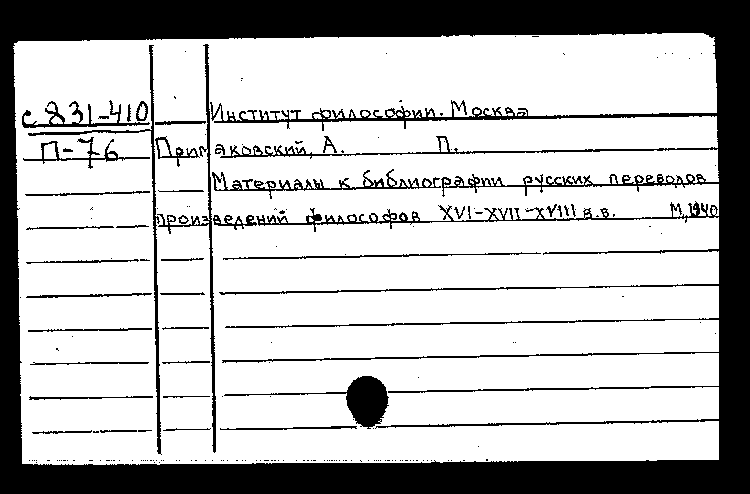 с 831-410 Институт философии. Москва
П-76 Примаковский, А. П.
Материалы к библиографии русских переводов
произведений философов XVI-XVII-XVIII в.в. М, 1940